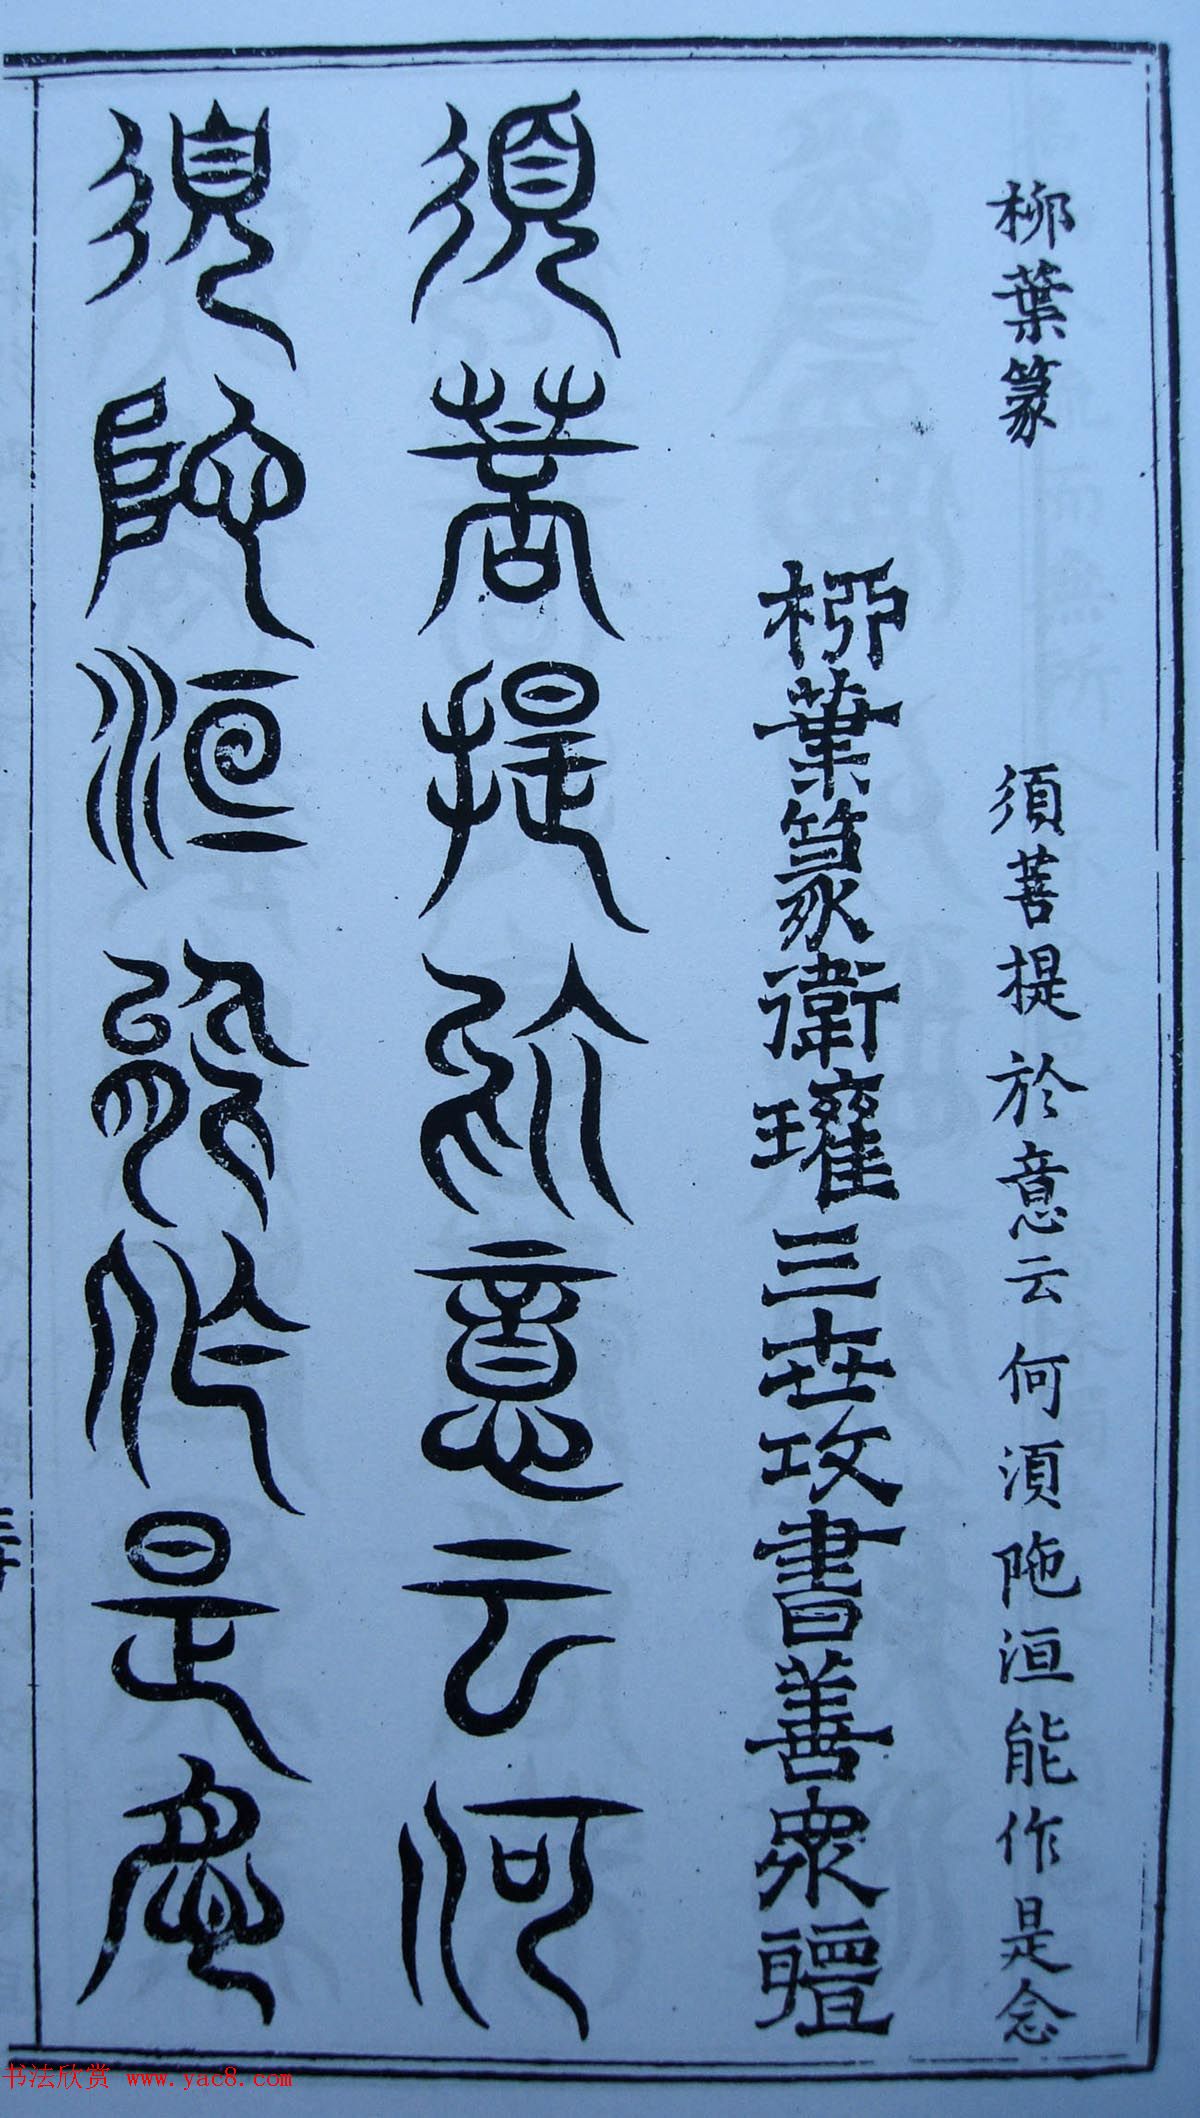 柳葉篆 須菩提於意云何湏陁洹能作是念
柳葉篆衛瓘三世攻書善衆體
須菩提於意云何
須陁洹能作是念
书法欣赏 www.yac8.com